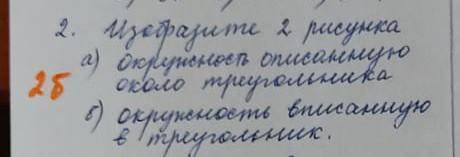 2. Изобразите 2 рисунка
а) окружность описанную
около треугольника
2б
б) окружность вписанную
в треугольник.